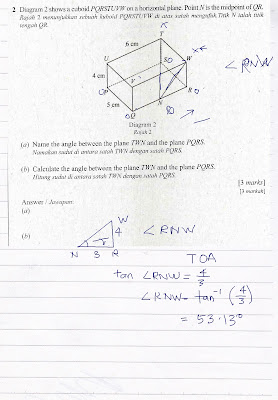 2 Diagram 2 shows a cuboid PQRSTUVW on a horizontal plane. Point N is the midpoint of QR.
Rajah 2 menunjukkan sebuah kuboid PQRSTUVW di atas satah mengufuk. Titik N ialah titik
tengah QR.
T
6 cm
SD
U
W
V
4 cm
R
5 cm
N
Q
∠RNW
Diagram 2
Rajah 2
(a) Name the angle between the plane TWN and the plane PQRS.
Namakan sudut di antara satah TWN dengan satah PQRS.
(b) Calculate the angle between the plane TWN and the plane PQRS.
Hitung sudut di antara satah TWN dengan satah PQRS.
[3 marks]
[3 markah]
Answer / Jawapan:
(a)
∠RNW
(b)
W
4
N 3 R
TOA
tan ∠RNW = 4/3
∠RNW = tan⁻¹ (4/3)
= 53.13°